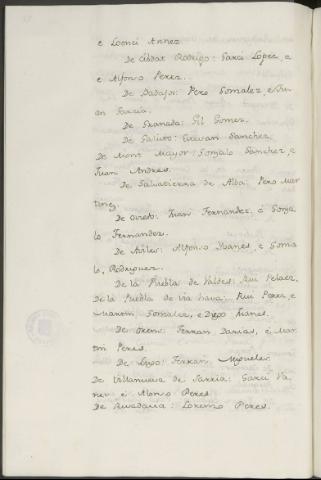 e Loenci Annez
De Cibdat Rodrigo: Garci Lopez, e
e Alfonso Perez.
De Badajoz: Pero Gomalez e Su-
an Garcia.
De Granada: Gil Gomez.
De Galisteo: Estevan Sanchez.
De Mont Mayor: Gonzalo Sanchez, e
Juan Andres.
De Salvatierra de Alba: Pero Mar-
tinez.
De Oviedo: Juan Fernandez, é Gonza-
lo Fernandez.
De Aviles: Alfonso Ibanes, e Gonza-
lo, Rodriguez.
De la Puebla de Valdes: Rui Pelaez.
De la Puebla de Via Nava: Rui Perez, e
Martin Gomalez, e Diego Juanes.
De Orens: Ferran Darias, é Mar-
tin Peres.
De Lugo: Ferran Migueles
De Villanueva de Sarria: Garci Ya-
nez é Alonso Peres
De Rivadavia: Lorenzo Peres.